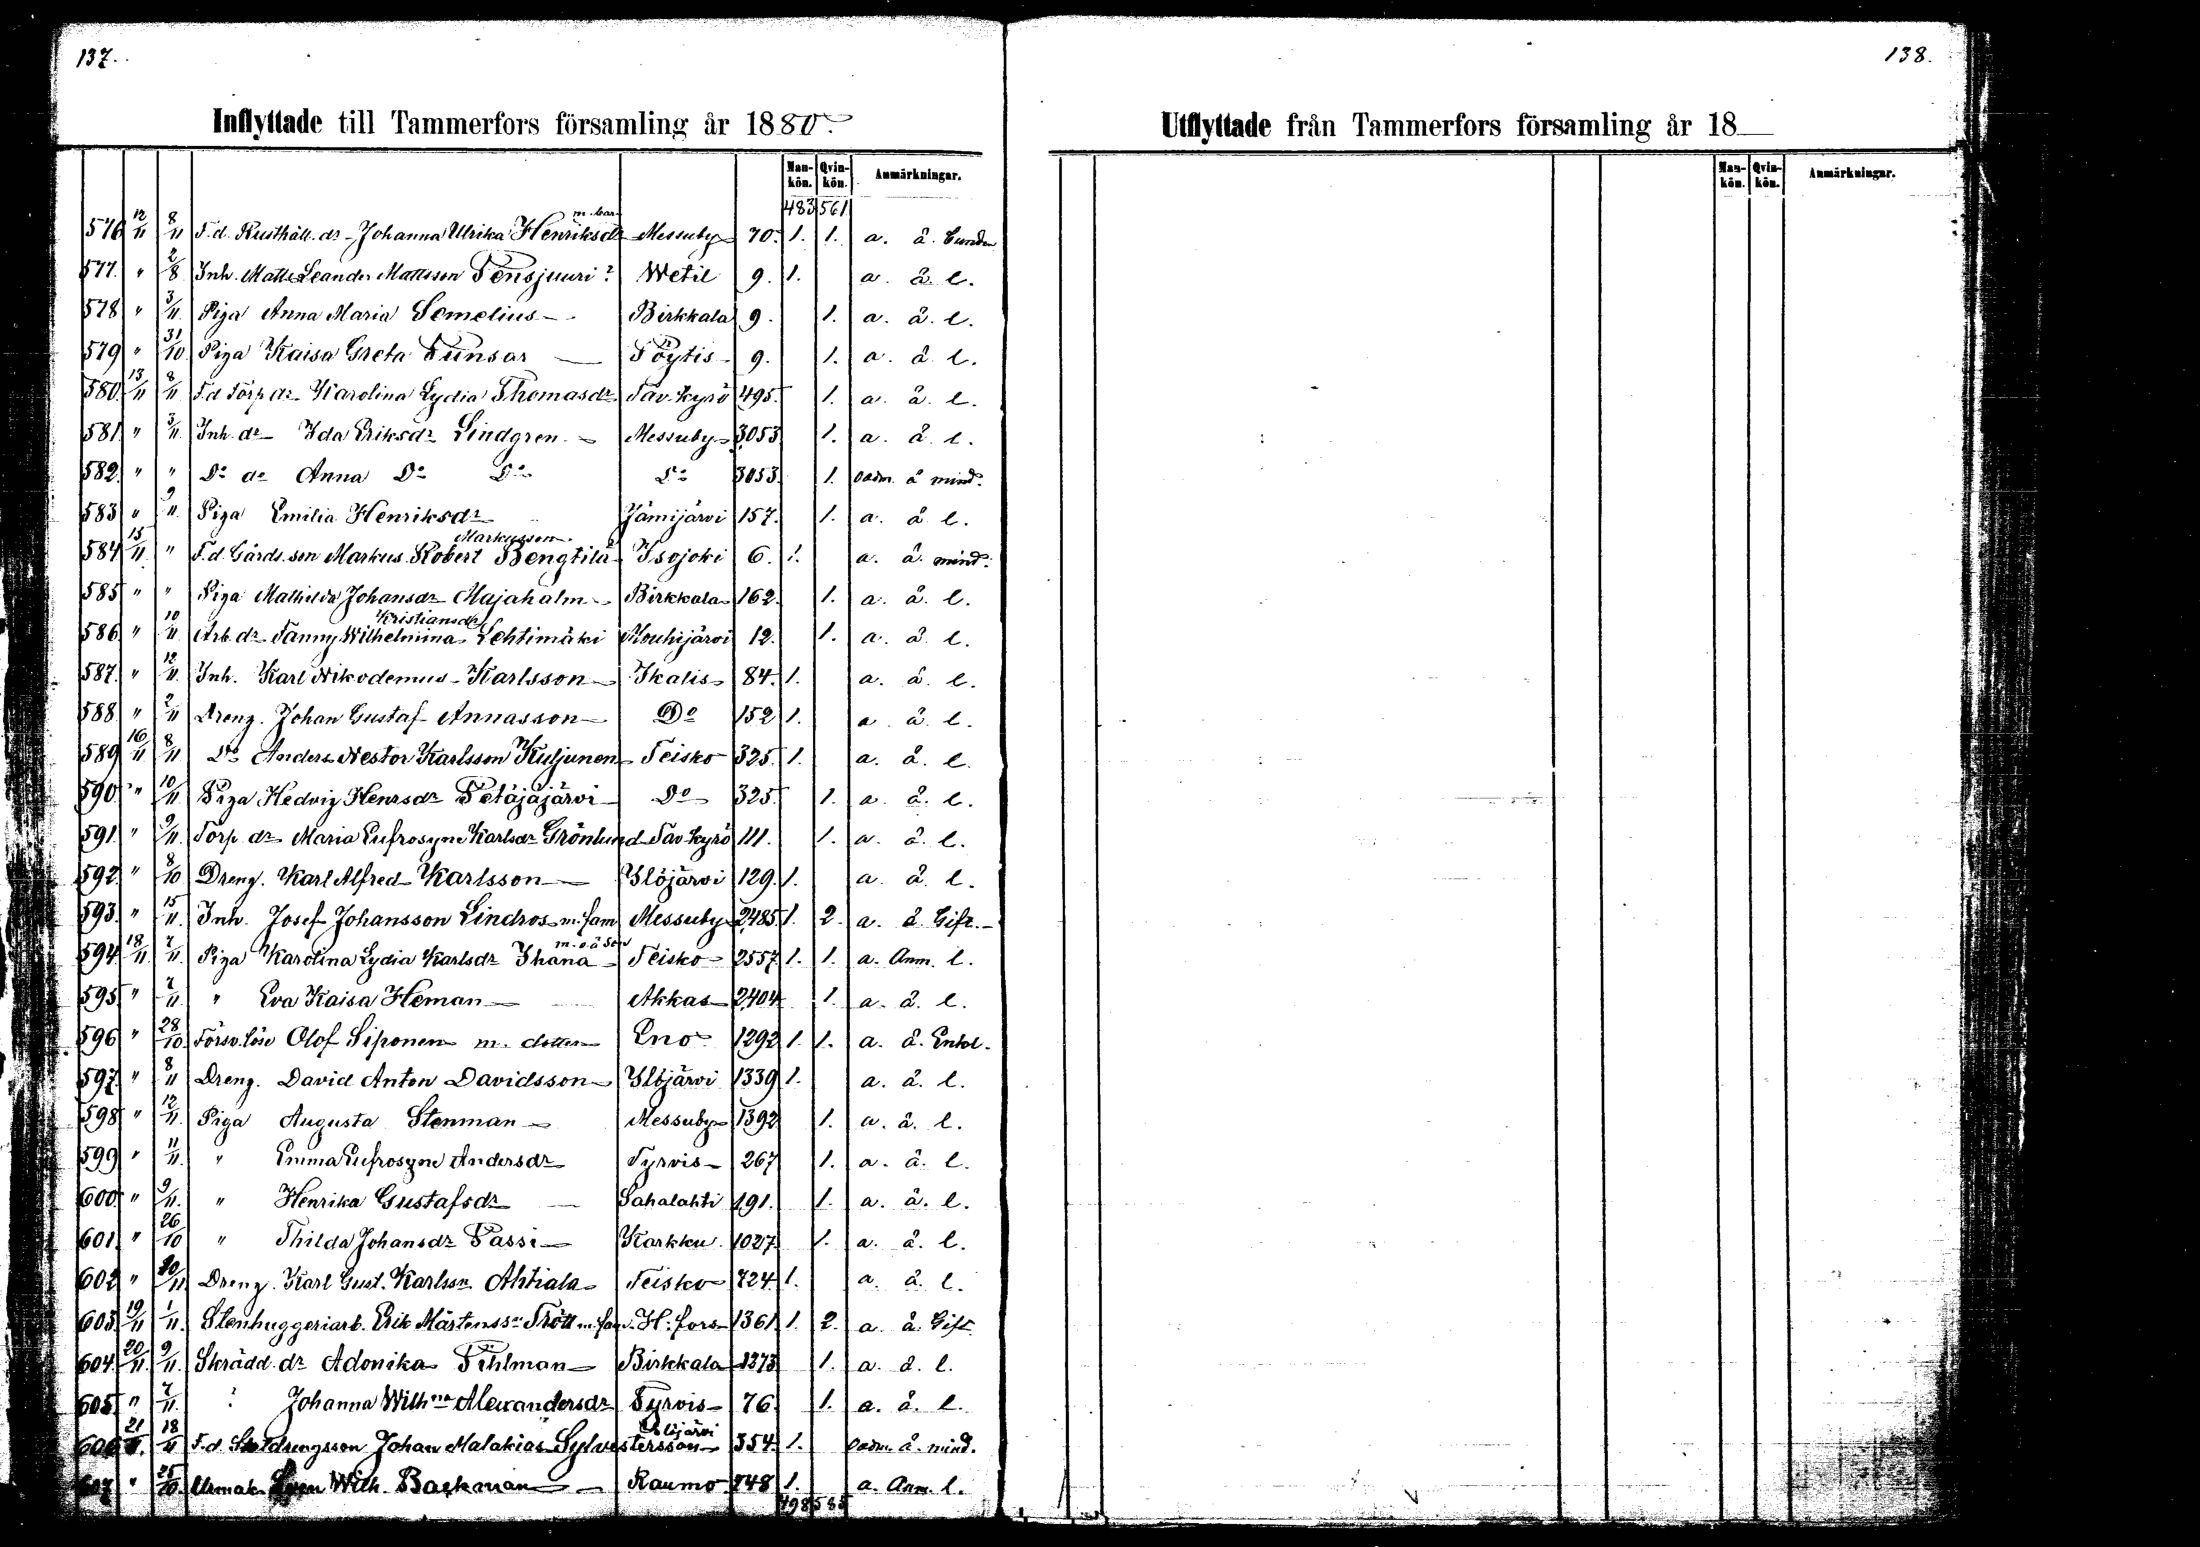 137.
138.
Inflyttade till Tammerfors församling år 1880.
Utflyttade från Tammerfors församling år 18
Man-kön. Qvin-kön. Anmärkningar.
Man-kön. Qvin-kön. Anmärkningar.
483 561
576 12/11 8/11 F.d. Rusthåll. dr Johanna Ulrika Henriksdr m. bar Messuby 70. 1. 1. a. å.
577. " 2/8 Inh. Matts Leander Mattsson Pensjuuri? Wetil 9. 1. a. å. l.
578 " 3/11 Piga Anna Maria Semelius Birkkala 9. 1. a. å. l.
579 " 31/10 Piga Kaisa Greta Funsar Pöytis 9. 1. a. å. l.
580. 13/11 8/11 F.d Torp dr Karolina Lydia Thomasdr Tav. kyrö 495. 1. a. å. l.
581. " 3/11. Inh. dr Ida Eriksdr Lindgren Messuby 3053 1. a. å. l.
582. " " Do dr Anna Do Do Do 3053. 1. oadm. å mind.
583 " 9/11. Piga Emilia Henriksdr Jämijärvi 157. 1. a. å l.
584 15/11. " F.d. Gårds. son Markus Robert Markusson Bengtilä Isojoki 6. 1. a. å. mind.
585 " " Piga Mathilda Johansdr Majahalm Birkkala 162. 1. a. å. l.
586 " 10/11. Arb. dr Fanny Wilhelmina Kristiansdr Lehtimäki Mouhijärvi 12. 1. a. å. l.
587. " 12/11. Inh. Karl Nikodemus Karlsson Ikalis 84. 1. a. å. l.
588. " 2/11 Dreng. Johan Gustaf Annasson Do 152 1. a å. l.
589 16/11 8/11 Do Anders Nestor Karlsson Kuljunen Teisko 325. 1. a. å. l.
590. " 10/11 Piga Hedvig Henrsdr Petäjäjärvi Do 325. 1. a. å. l.
591. " 9/11. Torp dr Maria Eufrosyne Karlsdr Grönlund Tav. kyrö 111. 1. a. å. l.
592. " 8/10 Dreng. Karl Alfred Karlsson Ylöjärvi 129. 1. a. å. l.
593. " 15/11. Inh. Josef Johansson Lindros m. fam Messuby 2485. 1. 2. a. å. Gift.
594. 18/11. 7/11. Piga Karolina Lydia Karlsdr Ihana m. o. ä. son Teisko 2557. 1. 1. a. Anm. l.
595 " 7/11. " Eva Kaisa Heman Akkas 2404 1. a. å. l.
596 " 28/10. Försv. löse Olof Siponen m. dotter Eno 1292 1. 1. a. å. Enkl.
597. " 8/11 Dreng. David Anton Davidsson Ylöjärvi 1339 1. a. å. l.
598 " 12/11. Piga Augusta Stenman Messuby 1392 1. a. å. l.
599 " 11/11. " Emma Eufrosyne Andersdr Tyrvis 267 1. a. å. l.
600. " 9/11. " Henrika Gustafsdr Sahalahti 191. 1. a. å. l.
601. " 26/10 " Thilda Johansdr Passi Karkku 1027. 1. a. å. l.
602 " 20/11. Dreng. Karl Gust. Karlsson Ahtiala Teisko 724 1. a. å. l.
603. 19/11 1/11. Stenhuggeriarb. Erik Mårtensson Trött m. fam. H:fors 1361 1. 2. a. å. Gift
604. 20/11. 9/11. Skrädd. dr Adonika Pihlman Birkkala 1373 1. a. å. l.
605 " 7/11. Johanna Wilhna Alexandersdr Tyrvis 76. 1. a. å. l.
606 21/11. 18/11 F.d. Johan Malakias Sylvestersson Ylöjärvi 354. 1. oadm. å. mind.
607 " 25/10. Urmak. Wilh. Backman Raumo 748 1. a. Anm. l.
498 585